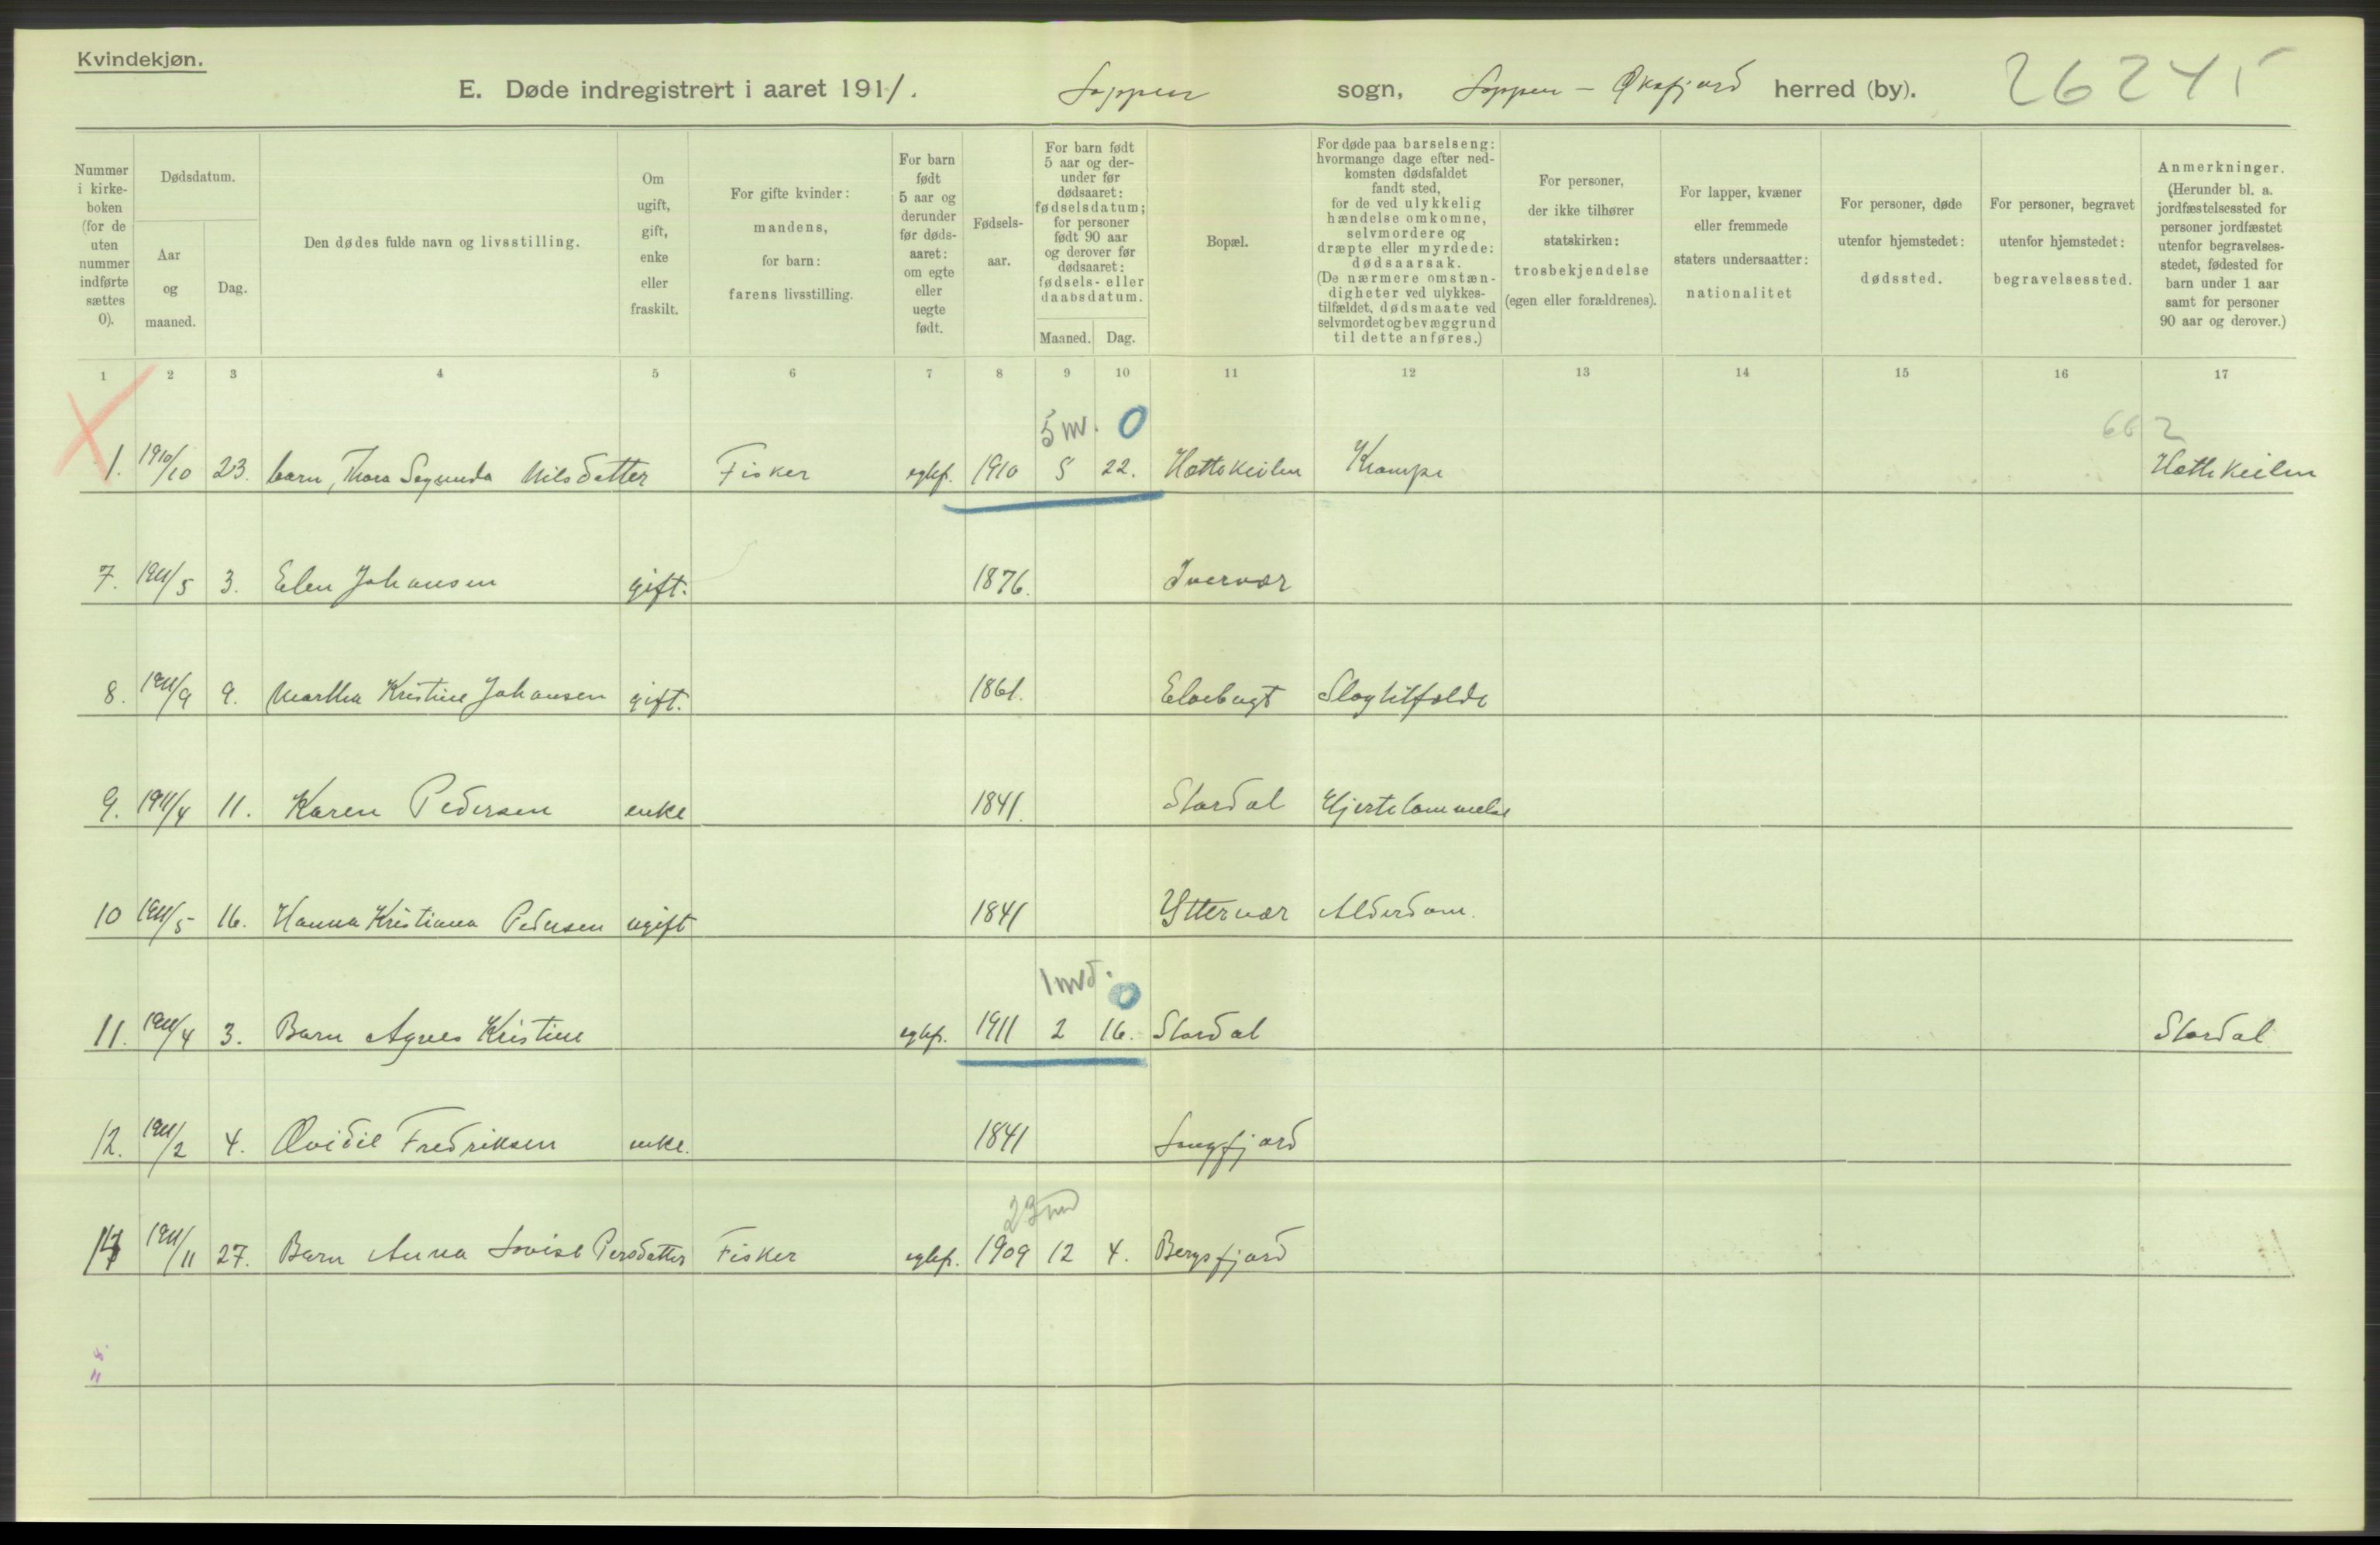 Kvindekjøn.
E. Døde indregistrert i aaret 1911. Loppen sogn, Loppen - Øksfjord herred (by). 26245
Nummer i kirkeboken (for de uten nummer indførte sættes 0).
Dødsdatum.
Aar og maaned.
Dag.
Den dødes fulde navn og livsstilling.
Om ugift, gift, enke eller fraskilt.
For gifte kvinder: mandens, for barn: farens livsstilling.
For barn født 5 aar og derunder før dødsaaret: om egte eller uegte født.
Fødselsaar.
For barn født 5 aar og derunder før dødsaaret: fødselsdatum; for personer født 90 aar og derover før dødsaaret: fødsels- eller daabsdatum.
Maaned. Dag.
Bopæl.
For døde paa barselseng: hvormange dage efter nedkomsten dødsfaldet fandt sted, for de ved ulykkelig hændelse omkomne, selvmordere og dræpte eller myrdede: dødsaarsak. (De nærmere omstændigheter ved ulykkestilfældet, dødsmaate ved selvmordet og bevæggrund til dette anføres.)
For personer, der ikke tilhører statskirken: trosbekjendelse (egen eller forældrenes).
For lapper, kvæner eller fremmede staters undersaatter: nationalitet
For personer, døde utenfor hjemstedet: dødssted.
For personer, begravet utenfor hjemstedet: begravelsessted.
Anmerkninger. (Herunder bl. a. jordfæstelsessted for personer jordfæstet utenfor begravelsesstedet, fødested for barn under 1 aar samt for personer 90 aar og derover.)
1 2 3 4 5 6 7 8 9 10 11 12 13 14 15 16 17
5 m. 0 662
1. 1910/10 23. barn, Thora Segunda Nilsdatter Fisker egtef. 1910 5 22. Hattekeilen Krampe Hattekeilen
7. 1911/5 3. Elen Johansen gift. 1876. Ivervær
8. 1911/9 9. Martha Kristine Johansen gift. 1861. Elvebugt Slagtilfælde
9. 1911/4 11. Karen Pedersen enke 1841. Stordal Hjertelammelse
10 1911/5 16. Hanna Kristiana Pedersen ugift 1841 Yttervær Alderdom.
1 md. 0
11. 1911/4 3. Barn Agnes Kristine egtef. 1911 2 16. Stordal Stordal
12. 1911/2 4. Ovidie Fredriksen enke. 1841 Langfjord
23 md
1911/11 27. Barn Anna Lovise Persdatter Fisker egtef. 1909 12 4. Bergsfjord